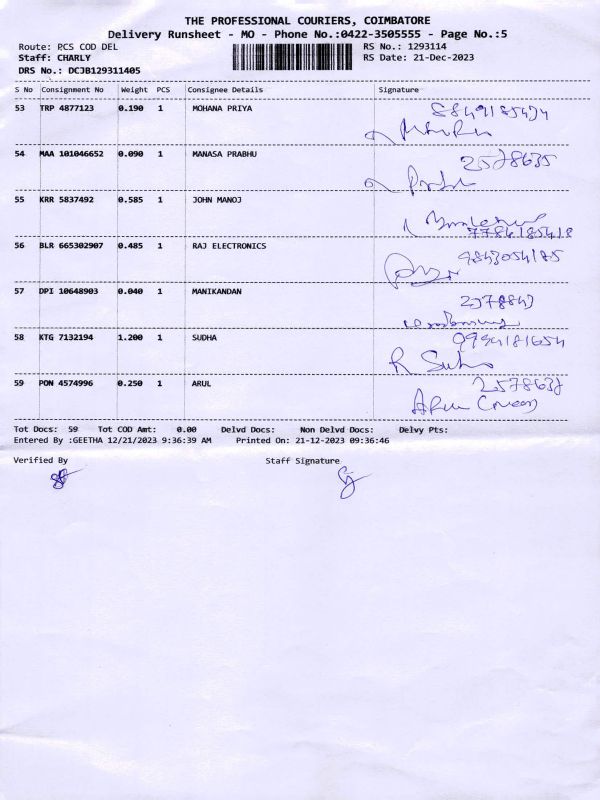 THE PROFESSIONAL COURIERS, COIMBATORE
Delivery Runsheet - MO - Phone No.:0422-3505555 - Page No.:5
Route: PCS COD DEL RS No.: 1293114
Staff: CHARLY RS Date: 21-Dec-2023
DRS No.: DCJB129311405
S No Consignment No Weight PCS Consignee Details Signature
53 TRP 4877123 0.190 1 MOHANA PRIYA
54 MAA 101046652 0.090 1 MANASA PRABHU 2578635
55 KRR 5837492 0.585 1 JOHN MANOJ
56 BLR 665302907 0.485 1 RAJ ELECTRONICS
57 DPI 10648903 0.040 1 MANIKANDAN
58 KTG 7132194 1.200 1 SUDHA 9994181654
R Sudha
59 PON 4574996 0.250 1 ARUL
Tot Docs: 59 Tot COD Amt: 0.00 Delvd Docs: Non Delvd Docs: Delvy Pts:
Entered By :GEETHA 12/21/2023 9:36:39 AM Printed On: 21-12-2023 09:36:46
Verified By Staff Signature